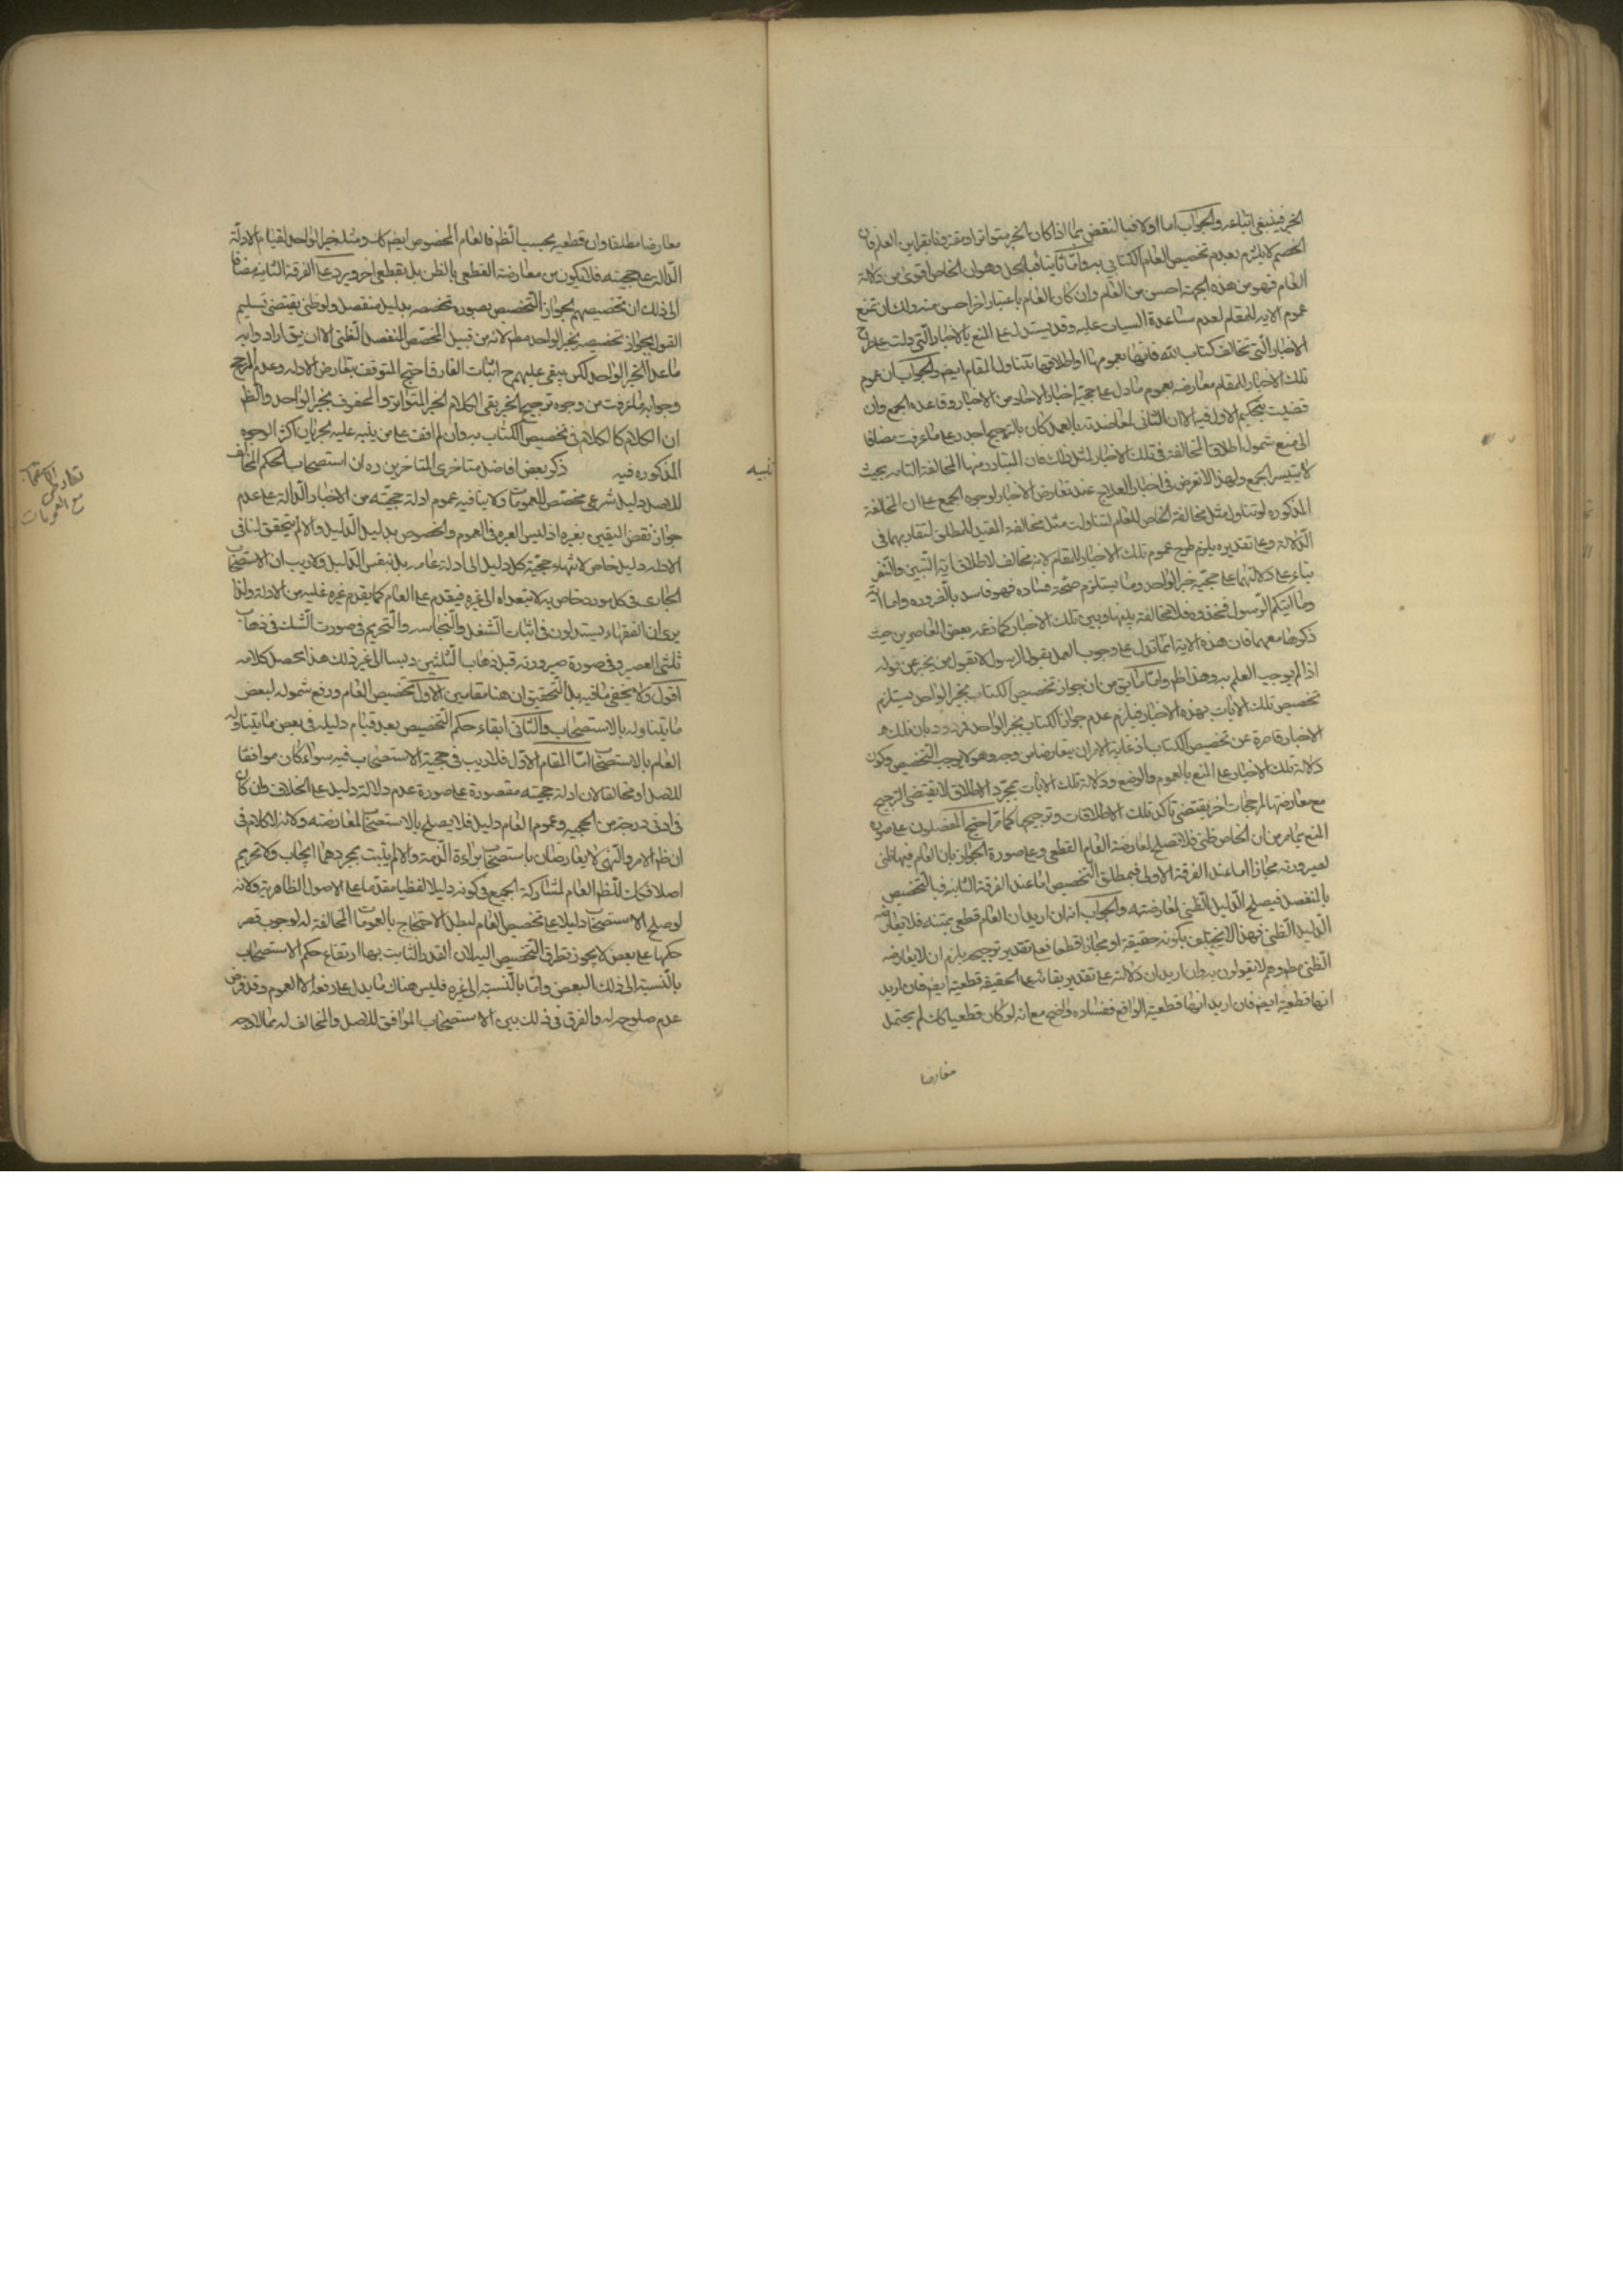 الخبر فينبغي اتباعه والجواب اما اولا فبالنقض بما اذا كان الخبر متواترا او مقترنا بقراين العلم فان
الخصم لا يلتزم بعدم تخصيص العام الكتابي به واما ثانيا فبالحل وهو ان الخاص اقوى من دلالة
العام فهو من هذه الجهة احسن من العام وان كان العام باعتبار اخر احسن منه ولك ان تمنع
عموم الاية للمقام لعدم مساعدة السياق عليه وقد يستدل على المنع بالاخبار التي دلت على طرح
الاخبار التي تخالف كتاب الله فانها بعمومها او اطلاقها تتناول المقام ايض والجواب ان عموم
تلك الاخبار للمقام معارضة بعموم ما دل على حجية اخبار الاحاد من الاخبار وقاعدة الجمع وان
قضيت بتحكيم الاول فيها الا ان الثاني لمعاضدته بالعمل كان بالترجيح اجدر على ما عرفت مضافا
الى منع شمول اطلاق المخالفة في تلك الاخبار لمثل ذلك فان المتبادر منها المخالفة التامة بحيث
لا يتيسر الجمع ولهذا لا تعرض في اخبار العلاج عند تعارض الاخبار لوجوه الجمع على ان المخالفة
المذكورة لو تناول مثل مخالفة الخاص للعام لتناولت مثل مخالفة المقيد للمطلق لتقاربهما في
الدلالة وعلى تقديره يلزم طرح عموم تلك الاخبار للمقام لانه مخالف لاطلاق اية التبين والنفر
بناء على دلالتهما على حجية خبر الواحد وما يستلزم صحته فساده فهو فاسد بالضرورة واما اية
وما اتيكم الرسول فخذوه فلا مخالفة بينها وبين تلك الاخبار كما زعمه بعض المعاصرين حيث
ذكرها معهما فان هذه الاية انما تدل على وجوب العمل بقول الرسول لا بقول من يخبر عن قوله
اذا لم يوجب العلم به وهذا ظ واما ما يق من ان جواز تخصيص الكتاب بخبر الواحد يستلزم
تخصيص تلك الايات بهذه الاخبار فيلزم عدم جواز الكتاب بخبر الواحد فمردود بان تلك
الاخبار قاصرة عن تخصيص الكتاب اذ غاية الامر ان يتعارضا من وجه وهو لا يوجب التخصيص وكون
دلالة تلك الاخبار على المنع بالعموم والوضع ودلالة تلك الايات بمجرد الاطلاق لا يقتضي الترجيح
مع معارضتها لمرجحات اخر يقتضي تاكد تلك الاطلاقات وترجيحها كما مر احتج المفصلون على صورة
المنع بما مر من ان الخاص ظني فلا تصلح لمعارضة العام القطعي وعلى صورة الجواز بان العام فيها ظني
لصيرورته مجازا اما عند الفرقة الاولى فبمطلق التخصيص اما عند الفرقة الثانية فبالتخصيص
بالمنفصل فيصلح الدليل الظني لمعارضته والجواب انه ان اريد ان العام قطعي بمتنه فلا يعارضه
الدليل الظني فهذا لا يختلف بكونه حقيقة او مجازا قطعا فعلى تقدير ترجيحه يلزم ان لا يعارضه
الظني مط وهم لا يقولون به وان اريد ان دلالته على تقدير بقائه على الحقيقة قطعية ايض فان اريد
انها قطعية ايض فان اريد انها قطعية الواقع ففساده واضح مع انه لو كان قطعيا كك لم يحتمل
معارضا
معارضا مطلقا وان قطعيه بحسب الظ فالعام المخصوص ايض كك ومثله خبر الواحد لقيام الادلة
الدالة على حجيته فلا يكون من معارضة القطعي بالظن بل بقطعي اخر ويرد على الفرقة الثانية مضافا
الى ذلك ان تخصيصهم لجواز التخصيص بصورة تخصيصه بدليل منفصل ولو ظني يقتضي تسليم
القول بجواز تخصيصه بخبر الواحد مط لانه من قبيل المخصص المنفصل الظني الا ان يق ارادوا به
ما عدا الخبر الواحد لكن يبقى عليهم ح اثبات الفارق احتج المتوقف بتعارض الادلة وعدم المرجح
وجوابه ما عرفت من وجوه ترجيح الخبر بقي الكلام الخبر المتواتر والمحفوف بخبر الواحد والظ
ان الكلام كالكلام في تخصيص الكتاب به وان لم اقف على من ينبه عليه لجريان اكثر الوجوه
تنبيه
المذكورة فيه ذكر بعض افاضل متاخري المتاخرين ره ان استصحاب الحكم المخالف
تعارض الاستصحاب
مع العمومات
للاصل دليل شرعي مخصص للعمومات ولا ينافيه عموم ادلة حجيته من الاخبار الدالة على عدم
جواز نقض اليقين بغيره اذ ليس العبرة في العموم والخصوص بدليل الدليل والا لم يتحقق لنا في
الادلة دليل خاص لانتهاء حجية كل دليل الى ادلة عامه بل بنفس الدليل ولا ريب ان الاستصحاب
الجاري في كل مورد خاص به لا يتعداه الى غيره فيقدم على العام كما يقدم غيره عليه من الادلة ولذا
يرى ان الفقهاء يستدلون في اثبات الشغل والنجاسه والتحريم في صورت الشك في ذهاب
ثلثي العصير وفي صورة صيرورته قبل ذهاب الثلثين دبسا الى غير ذلك هذا محصل كلامه
اقول ولا يخفى ما فيه بل التحقيق ان هنا مقامين الاول تخصيص العام ورفع شموله لبعض
ما يتناوله بالاستصحاب والثاني ابقاء حكم التخصيص بعد قيام دليله في بعض ما يتناوله
العام بالاستصحاب اما المقام الاول فلا ريب في حجية الاستصحاب فيه سواء كان موافقا
للاصل او مخالفا لان ادلة حجيته مقصورة على صورة عدم دلالة دليل على الخلاف وان كان
في ادنى درجة من الحجيه وعموم العام دليل فلا يصلح بالاستصحاب لمعارضته ولانه لا كلام في
ان ظ الامر والنهي لا يعارضان باستصحاب براءة الذمة والا لم يثبت بمجردهما ايجاب ولا تحريم
اصلا فكك الظ العام لمشاركة الجميع في كونه دليلا لفظيا مقدما على الاصول الظاهرية ولانه
لو صلح الاستصحاب دليلا على تخصيص العام لبطل الاحتجاج بالعمومات المخالفة له لوجوب قصر
حكمها على بعض لا يجوز تطرق التخصيص اليه لان القدر الثابت بها ارتفاع حكم الاستصحاب
بالنسبة الى ذلك البعض واما بالنسبة الى غيره فليس هناك ما يدل على رفعه الا العموم وقد فرض
عدم صلوحه له والفرق في ذلك بين الاستصحاب الموافق للاصل والمخالف له مما لا وجه